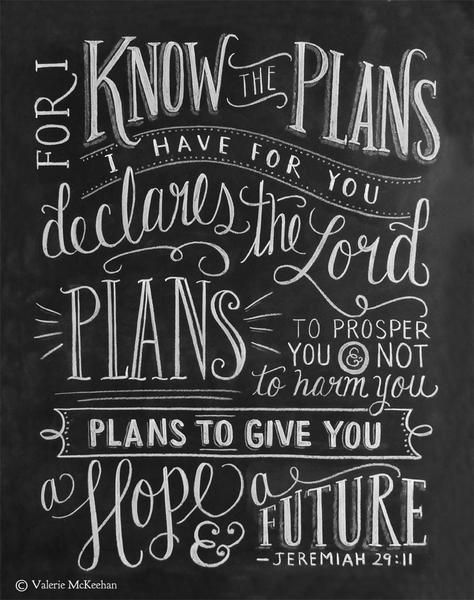 FOR I
KNOW THE PLANS
I HAVE FOR YOU
declares the Lord
PLANS
TO PROSPER
YOU & NOT
to harm you
PLANS TO GIVE YOU
a Hope
& a
FUTURE
-JEREMIAH 29:11
© Valerie McKeehan